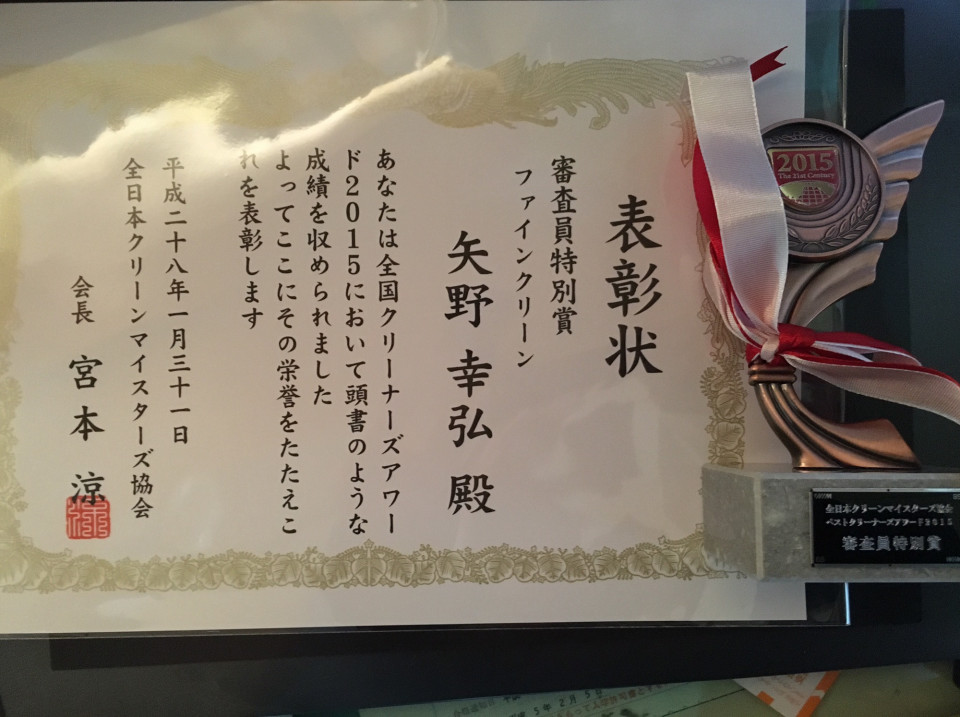 表彰状
審査員特別賞
ファインクリーン
矢野 幸弘 殿
あなたは全国クリーナーズアワー
ド2015において頭書のような
成績を収められました
よってここにその栄誉をたたえこ
れを表彰します
平成二十八年一月三十一日
全日本クリーンマイスターズ協会
会長 宮本 涼
2015
The 21st Century
全日本クリーンマイスターズ協会
ベストクリーナーズアワード2015
審査員特別賞
5年2月5日